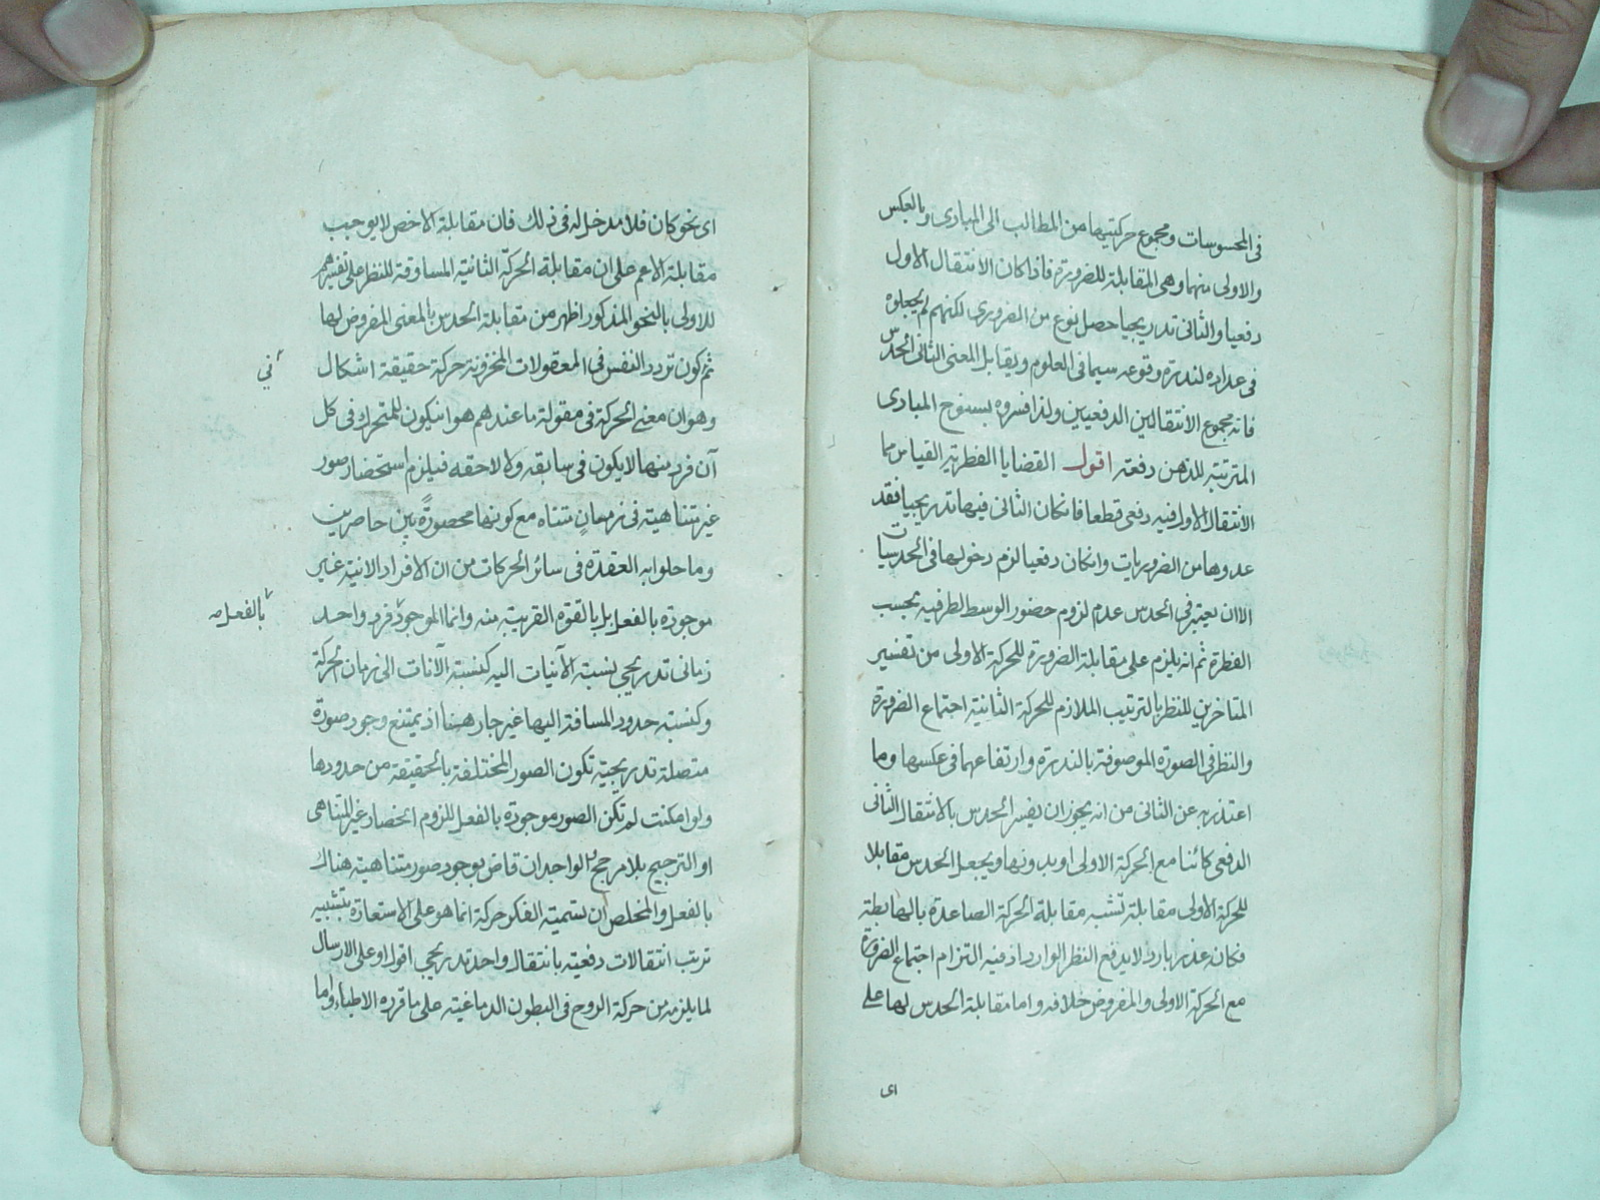 فى المحسوسات ومجموع حركتيها من المطالب الى المبادى وبالعكس
والاولى منهما وهى المقابلة للضرورة فاذا كان الانتقال الاول
دفعيا والثانى تدريجيا حصل نوع من الضرورى لكنهم لم يجعلوه
فى عداده لندرة وقوعه سيما فى العلوم ويقابل المعنى الثانى الحدس
فانه مجموع الانتقالين الدفعيين ولذا فسروه بسنوح المبادى
المترتبة للذهن دفعة اقول القضايا الفطرية القياس مما
الانتقال الاول فيه دفعى قطعا فان كان الثانى فيها تدريجيا فقد
عدوها من الضروريات وان كان دفعيا لزم دخولها فى الحدسيات
الا ان يعتبر فى الحدس عدم لزوم حضور الوسط لطرفيه بحسب
الفطرة ثم انه يلزم على مقابلة الضرورة للحركة الاولى من تفسير
المتاخرين للنظر بالترتيب الملازم للحركة الثانية اجتماع الضرورة
والنظر فى الصورة الموصوفة بالندرة وارتفاعهما فى عكسها وما
اعتذر به عن الثانى من انه يجوز ان يفسر الحدس بالانتقال الثانى
الدفعى كائنا مع الحركة الاولى او بدونها ويجعل الحدس مقابلا
للحركة الاولى مقابلة تشبه مقابلة الحركة الصاعدة بالهابطة
فكانه عذر بارد لا يدفع النظر الوارد اذ فيه التزام اجتماع الضرورة
مع الحركة الاولى والمفروض خلافه واما مقابلة الحدس لها على
اى
اى نحو كان فلا مدخل له فى ذلك فان مقابلة الاخص لا يوجب
مقابلة الاعم على ان مقابلة الحركة الثانية المساوقة للنظر على تفسيرهم
للاولى بالنحو المذكور اظهر من مقابلة الحدس بالمعنى المفروض لها
ثم كون تردد النفس فى المعقولات المخزونة حركة حقيقة اشكال
فى
وهو ان معنى الحركة فى مقولة ما عندهم هو ان يكون للمتحرك فى كل
آن فرد منها لا يكون فى سابقه ولا لاحقه فيلزم استحضار صور
غير متناهية فى زمان متناه مع كونها محصورة بين حاصرين
وما حلوا به العقدة فى سائر الحركات من ان الافراد الانية غير
موجودة بالفعل بل بالقوة القريبة منه وانما الموجود فرد واحد
بالفعل صه
زمانى تدريجى نسبة الآنيات اليه كنسبة الآنات الى زمان الحركة
وكنسبة حدود المسافة اليها غير جار هىهنا اذ يمتنع وجود صورة
متصلة تدريجية تكون الصور المختلفة بالحقيقة من حدودها
ولو امكنت لم تكن الصور موجودة بالفعل للزوم انحصار غير المتناهى
او الترجيح بلا مرجح والواجدان قاض بوجود صور متناهية هناك
بالفعل والمخلص ان تسمية الفكر حركة انما هو على الاستعارة بتشبيه
ترتب انتقالات دفعية بانتقال واحد تدريجى اقول او على الارسال
لما يلزمه من حركة الروح فى البطون الدماغية على ما قرره الاطباء واما